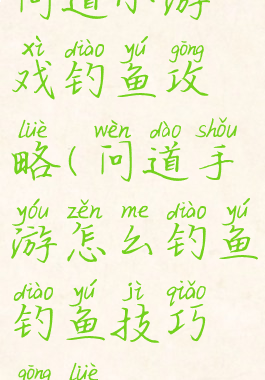 问道小游
xì diào yú gōng
戏钓鱼攻
lüè wèn dào shǒu
略(问道手
yóu zěn me diào yú
游怎么钓鱼
diào yú jì qiǎo
钓鱼技巧
gōng lüè